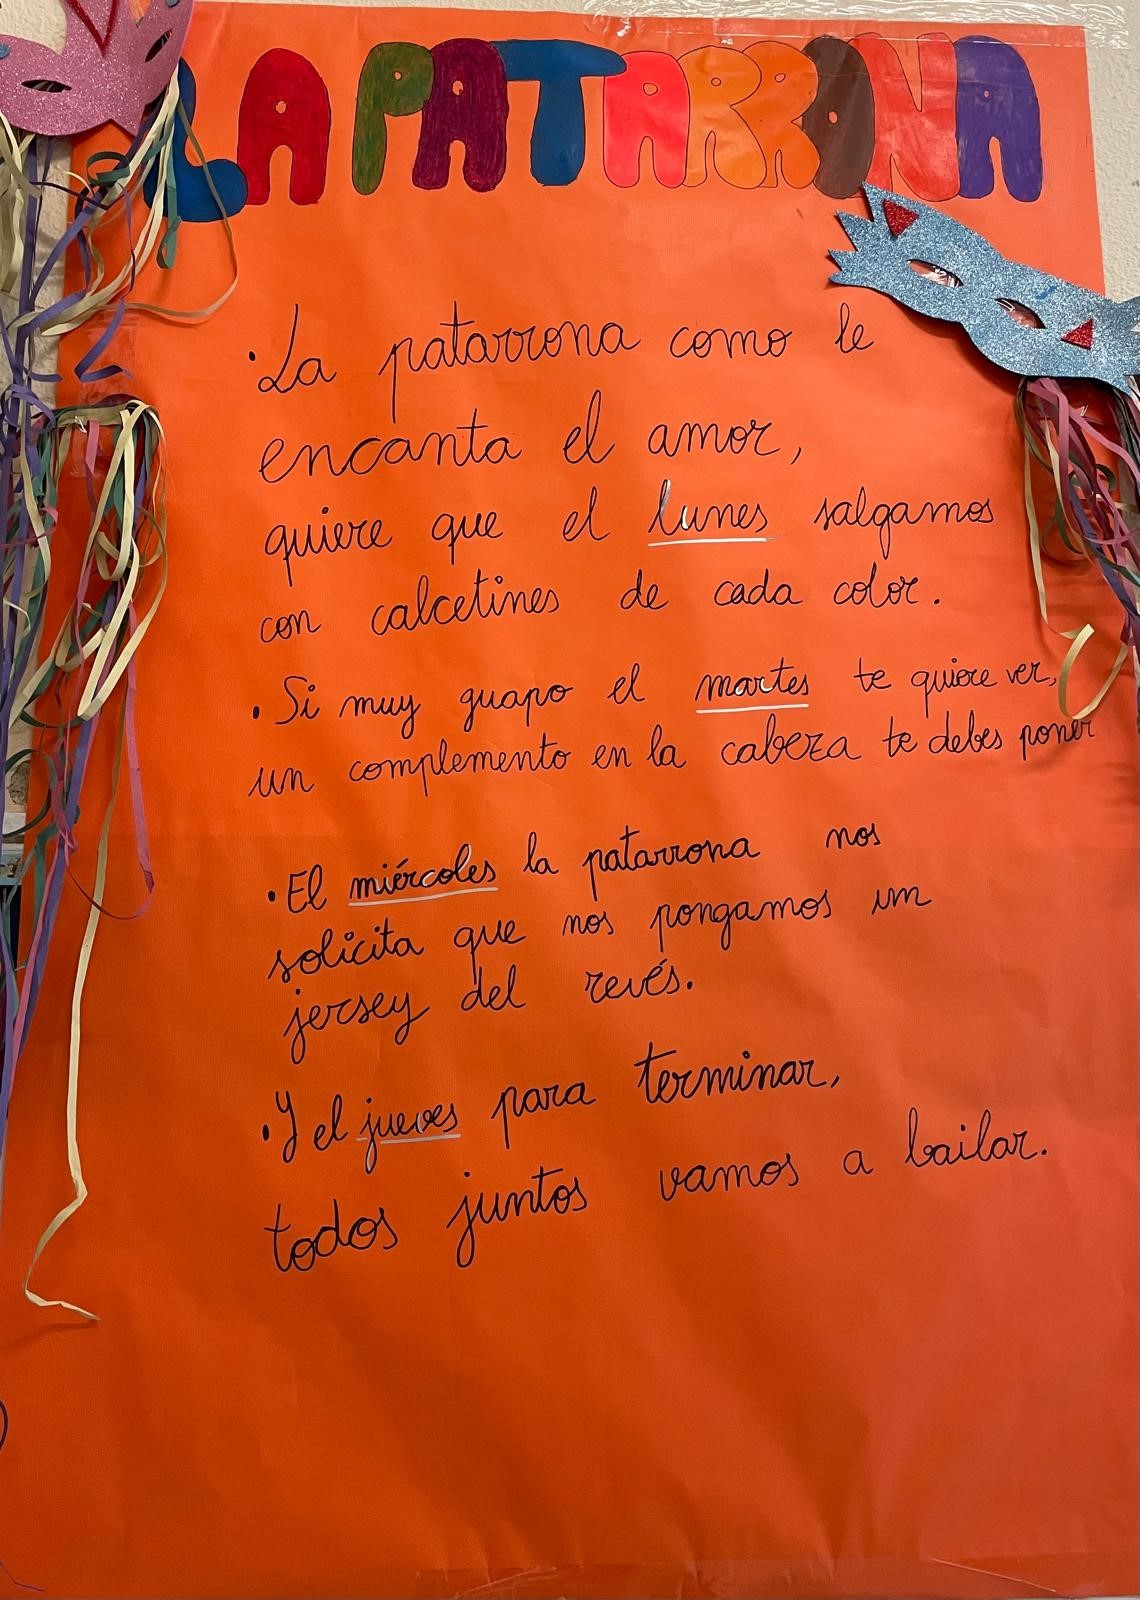 LA PATARRONA
· La patarrona como le
encanta el amor,
quiere que el lunes salgamos
con calcetines de cada color.
· Si muy guapo el martes te quiere ver,
un complemento en la cabeza te debes poner
· El miércoles la patarrona nos
solicita que nos pongamos un
jersey del revés.
· Y el jueves para terminar,
todos juntos vamos a bailar.